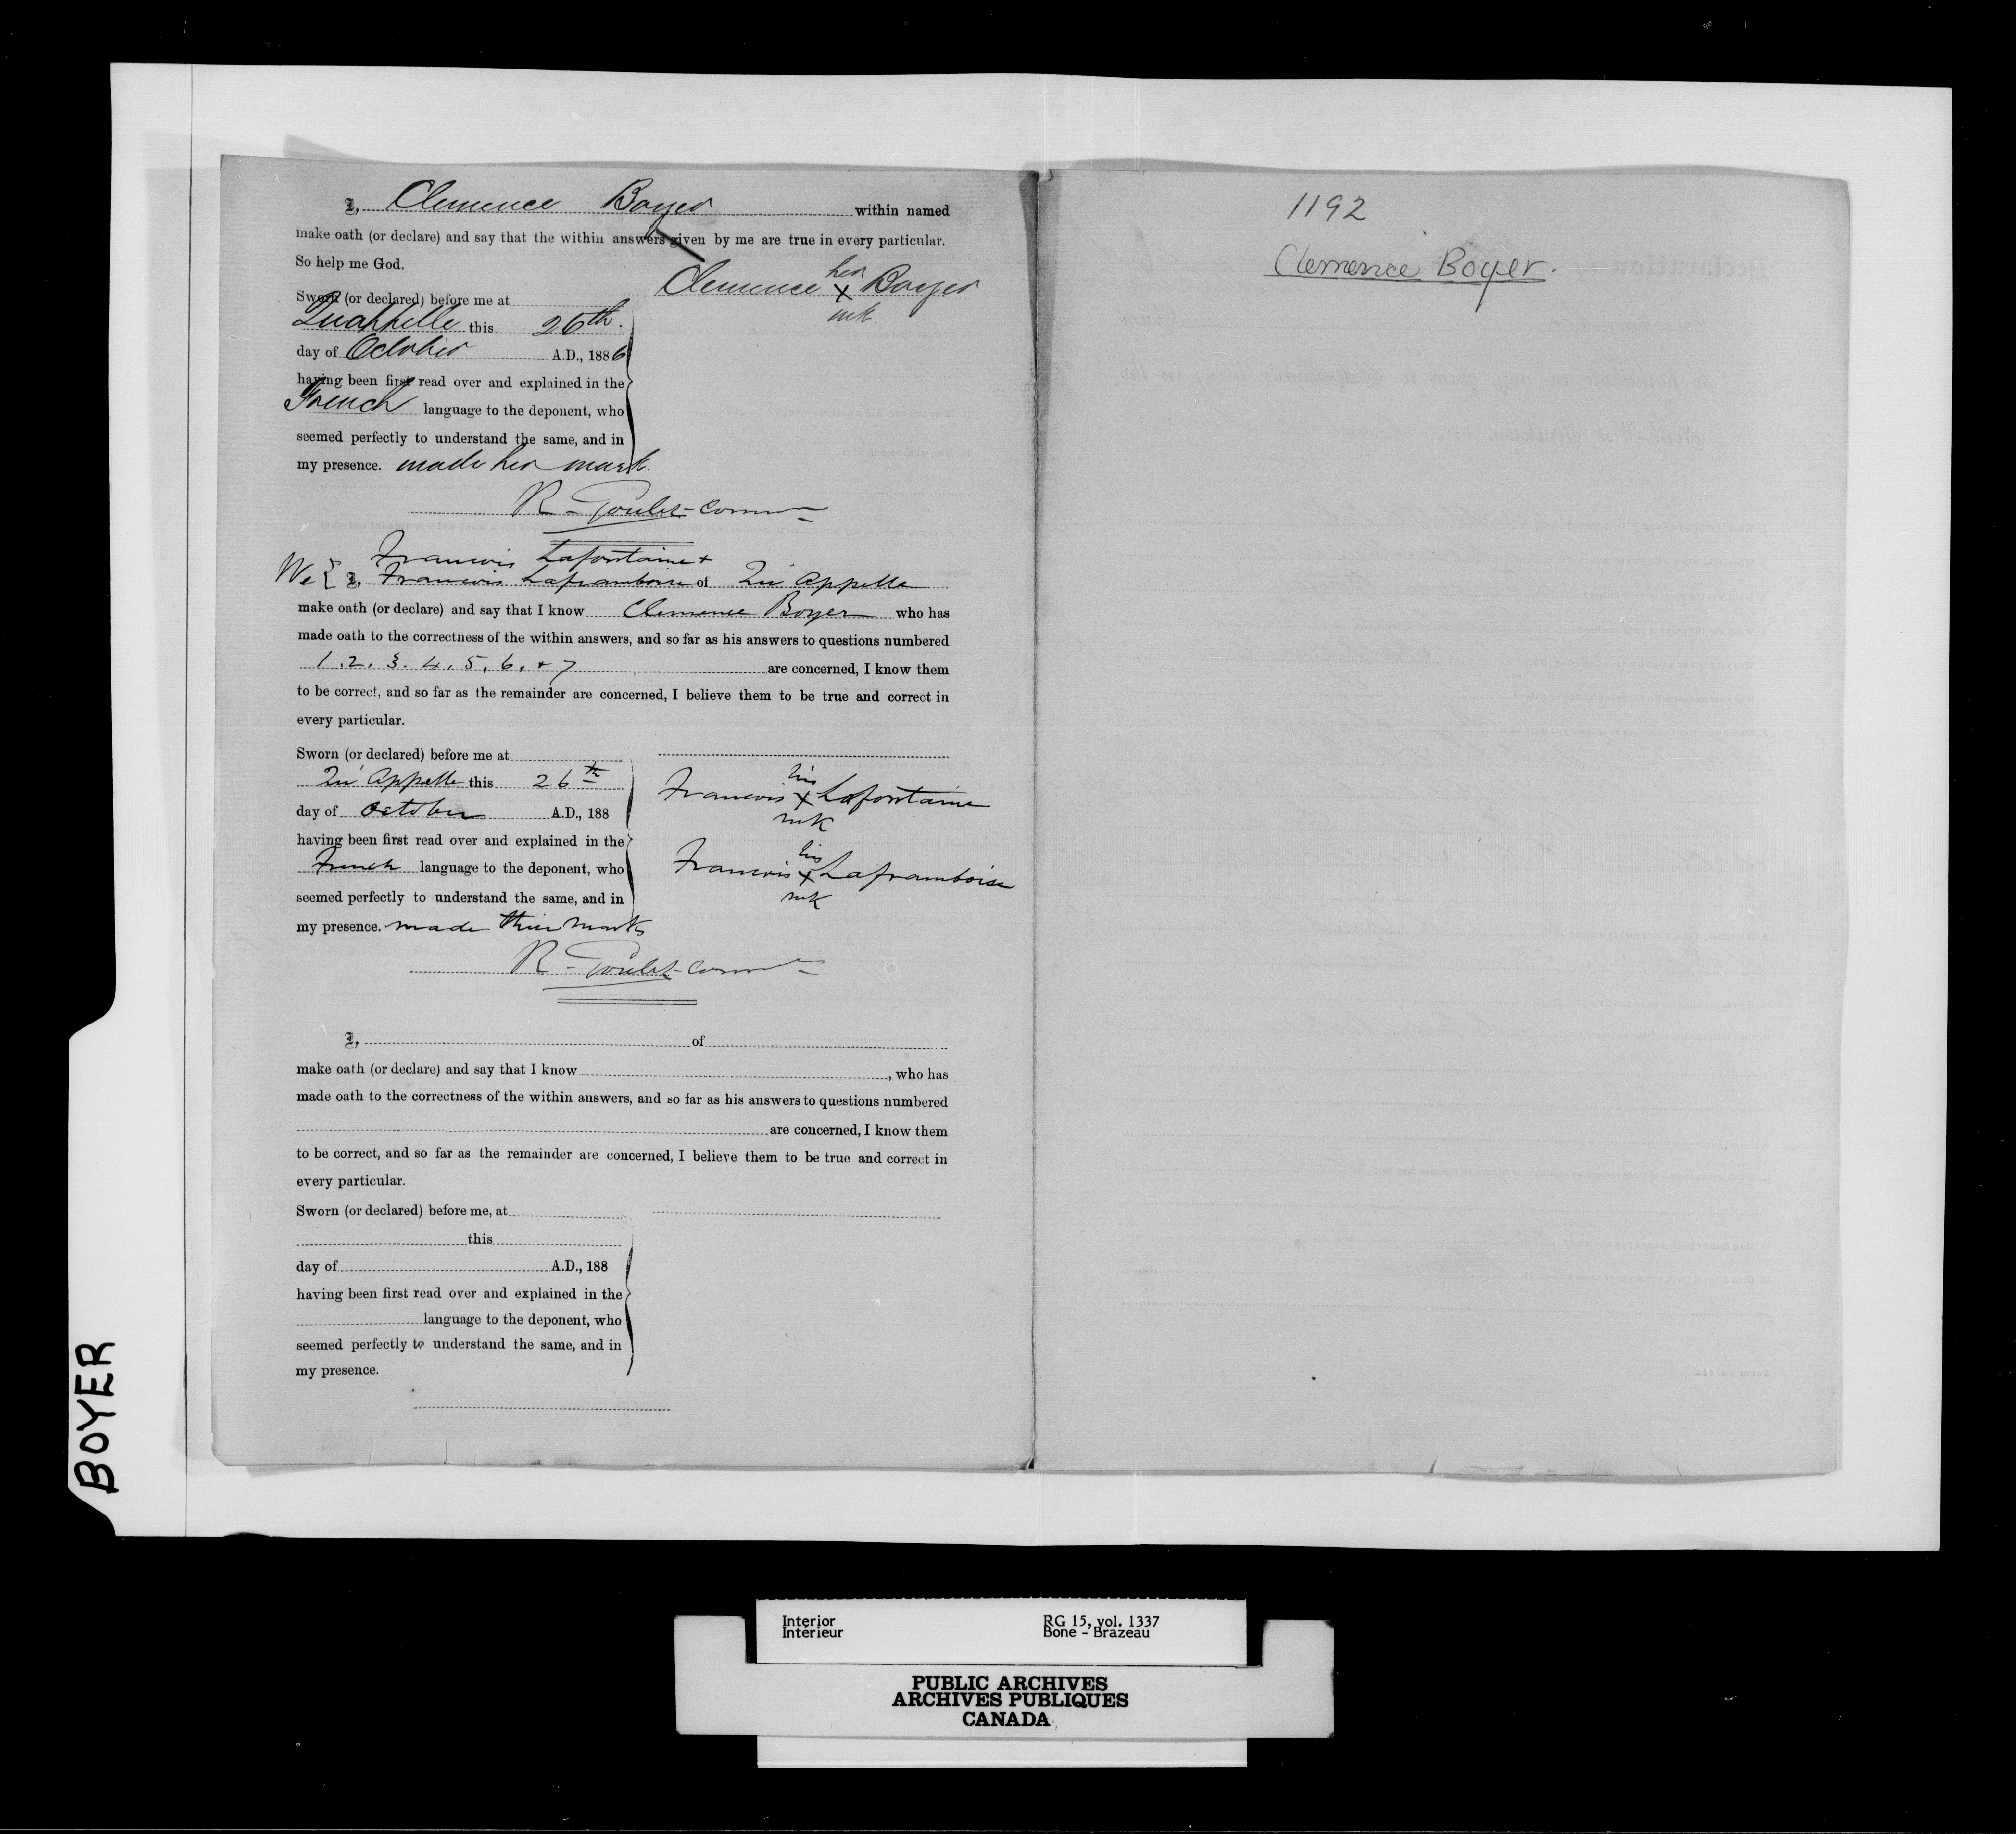 I, Clemence Boyer within named
make oath (or declare) and say that the within answers given by me are true in every particular.
So help me God.
Clemence her x mk Boyer
Sworn (or declared) before me at
Quappelle this 26th.
day of October A.D., 1886
having been first read over and explained in the
French language to the deponent, who
seemed perfectly to understand the same, and in
my presence. made her mark.
R. Goulet - Comm
Francois Lafontaine +
We { I, Francois Laframboise of Qu'Appelle
make oath (or declare) and say that I know Clemence Boyer who has
made oath to the correctness of the within answers, and so far as his answers to questions numbered
1. 2. 3. 4. 5. 6. + 7 are concerned, I know them
to be correct, and so far as the remainder are concerned, I believe them to be true and correct in
every particular.
Sworn (or declared) before me at
Qu'Appelle this 26th
day of October A.D., 188
having been first read over and explained in the
French language to the deponent, who
seemed perfectly to understand the same, and in
my presence. made their marks
Francois his x mk Lafontaine
Francois his x mk Laframboise
R. Goulet - Comm
I, of
make oath (or declare) and say that I know , who has
made oath to the correctness of the within answers, and so far as his answers to questions numbered
are concerned, I know them
to be correct, and so far as the remainder are concerned, I believe them to be true and correct in
every particular.
Sworn (or declared) before me, at
this
day of A.D., 188
having been first read over and explained in the
language to the deponent, who
seemed perfectly to understand the same, and in
my presence.
1192
Clemence Boyer.
BOYER
Interior RG 15, vol. 1337
Intérieur Bone - Brazeau
PUBLIC ARCHIVES
ARCHIVES PUBLIQUES
CANADA